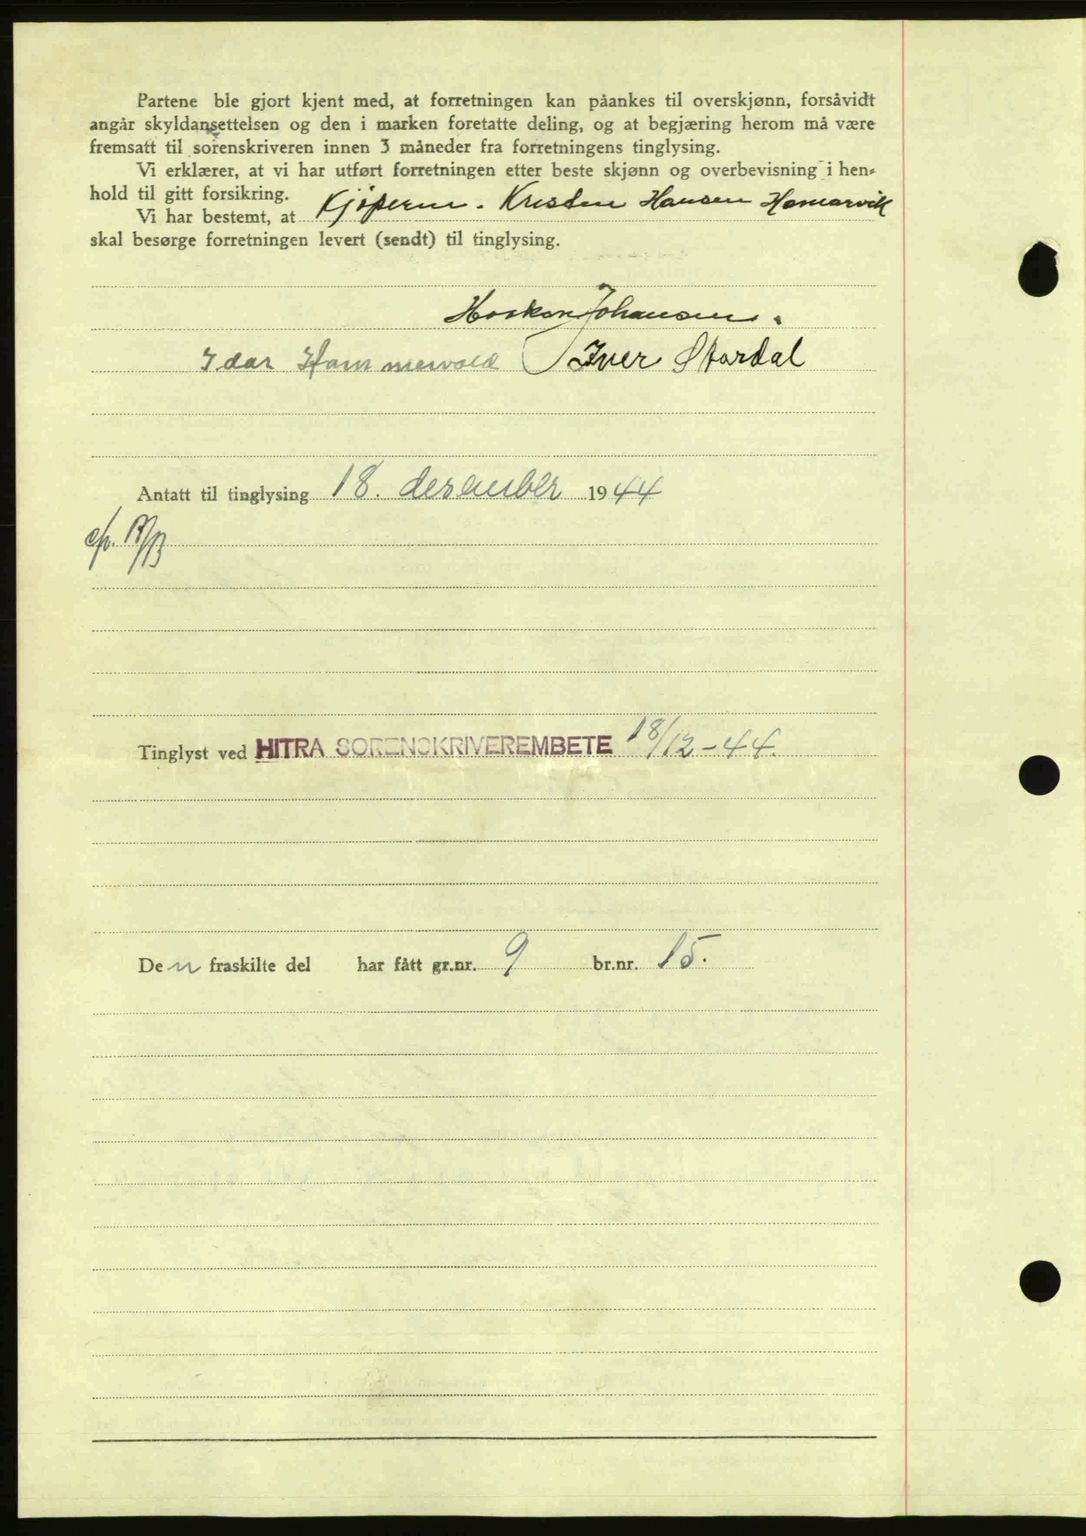 Partene ble gjort kjent med, at forretningen kan påankes til overskjønn, forsåvidt
angår skyldansettelsen og den i marken foretatte deling, og at begjæring herom må være
fremsatt til sorenskriveren innen 3 måneder fra forretningens tinglysing.
Vi erklærer, at vi har utført forretningen etter beste skjønn og overbevisning i hen-
hold til gitt forsikring.
Vi har bestemt, at Kjøperen. Kristen Hansen Hamarvik
skal besørge forretningen levert (sendt) til tinglysing.
Haakon Johansen.
Idar Hammervold Iver Stordal
Antatt til tinglysing 18. desember 1944
Tinglyst ved HITRA SORENSKRIVEREMBETE 18/12-44.
Den fraskilte del har fått gr.nr. 9 br.nr. 15.